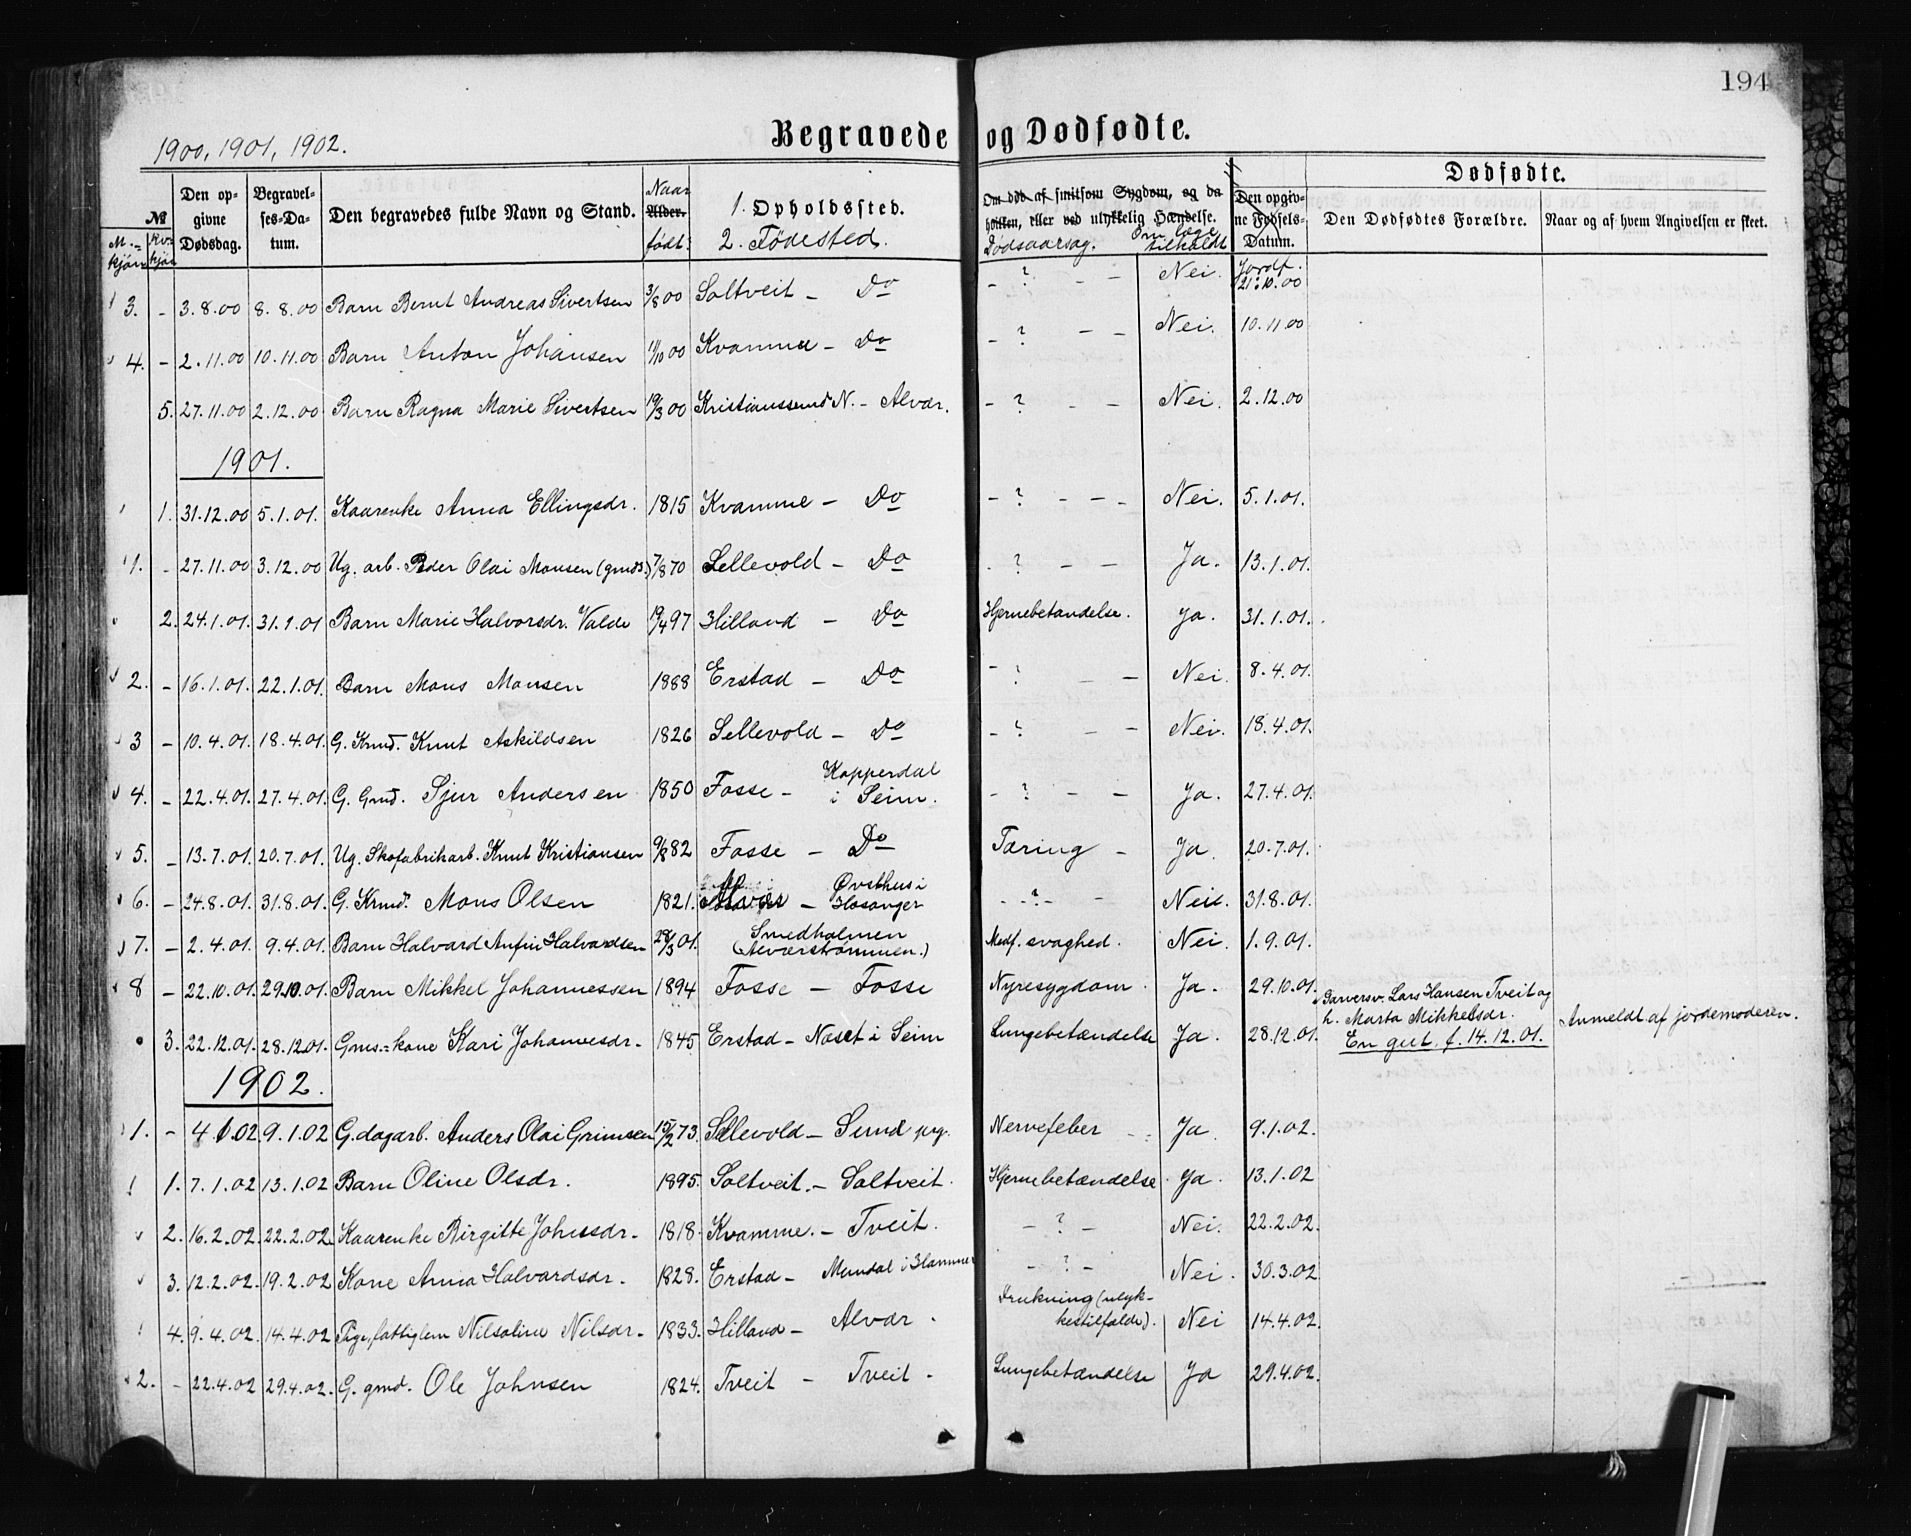 194
1900, 1901, 1902.
Begravede og Dødfødte.
Dødfødte.
№
M.-kjøn
Kv.kjøn
Den opgivne Dødsdag.
Begravelses-Datum.
Den begravedes fulde Navn og Stand.
Naar Alder. født:
1. Opholdssted.
2. Fødested.
Om død af smitsom Sygdom, og da hvilken, eller ved ulykkelig Hændelse.
Dødsaarsag.
Om læge tilkaldt
Den opgivne Fødsels-Datum.
Jordf.
Den Dødfødtes Forældre.
Naar og af hvem Angivelsen er skeet.
3. - 3.8.00 8.8.00 Barn Bernt Andreas Sivertsen 3/8 00 Soltveit - Do - ? - Nei. 21.10.00
4. - 2.11.00 10.11.00 Barn Anton Johansen 11/10 00 Kvamme - Do - ? - - Nei. 10.11.00
5. 27.11.00 2.12.00 Barn Ragna Marie Sivertsen 19/3 00 Kristianssund N. - Alvær. - ? - - Nei. 2.12.00
1901.
1. 31.12.00 5.1.01. Kaarenke Anna Ellingsdr. 1815 Kvamme - Do - ? - - - Nei. 5.1.01.
1. - 27.11.00 3.12.00 Ug. arb. Peder Olai Monsen (gmds.) 7/8 70 Sellevold - Do - ? - - Ja. 13.1.01.
2. 24.1.01. 31.1.01 Barn Marie Halvorsdr. Valde 19/4 97 Hilland - Do Hjernebetændelse. Ja. 31.1.01.
2. - 16.1.01. 22.1.01. Barn Mons Monsen 1888 Erstad - Do - ? - - Nei. 8.4.01.
3 - 10.4.01. 18.4.01. G. Krmd. Knut Askildsen 1826 Sellevold - Do - ? - - Nei. 18.4.01.
4. - 22.4.01. 27.4.01. G. Gmd. Sjur Andersen 1850 Fosse - Kopperdal i Seim. - ? - - Ja. 27.4.01.
5. - 13.7.01. 20.7.01. Ug. Skofabrikarb. Knut Kristiansen 9/8 82 Fosse - Do Tæring - Ja. 20.7.01.
6. - 24.8.01. 31.8.01. G. Krmd. Mons Olsen 1821. Alvær - Østhus i Hosanger - ? - - Nei. 31.8.01.
7. - 2.4.01. 9.4.01. Barn Halvard Anfin Halvardsen 28/3 01. Smedholmen (Alværstrømmen.) Medf. svaghed. Nei. 1.9.01.
8 - 22.10.01. 29.10.01. Barn Mikkel Johannessen 1894 Fosse - Fosse Nyresygdom. Ja. 29.10.01.
Garversv. Lars Hansen Tveit og
h. Marta Mikkelsdr.
En gut. f. 14.12.01.
Anmeldt af jordemoderen.
3. 22.12.01. 28.12.01. Gms.-kone Kari Johannesdr. - 1845 Erstad - Naset i Seim Lungebetændelse Ja. 28.12.01.
1902.
1. - 4.1.02. 9.1.02 G. dagarb. Anders Olai Grimsen 15/2 73. Sellevold - Sund pg. Nervefeber - Ja. 9.1.02.
1. 7.1.02 13.1.02 Barn Oline Olsdr. 1895. Soltveit. - Soltveit. Hjernebetændelse. Ja. 13.1.02
2. 16.2.02. 22.2.02. Kaarenke Birgitte Johnsdr. - 1818. Kvamme. - Tveit. - ? - Nei. 22.2.02.
3. 12.2.02. 19.2.02 Kone Anna Halvardsdr. - 1828. Erstad - Mundal i Hammer - ? - Nei. 30.3.02
4. 9.4.02. 14.4.02 Pige, fattiglem Nilsoline Nilsdr. - 1833. Hilland - Alvær. Drukning (ulykkestilfælde). Nei 14.4.02.
2. - 22.4.02 29.4.02. G. gmd. Ole Johnsen 1824. Tveit - Tveit. Lungebetændelse Ja 29.4.02.